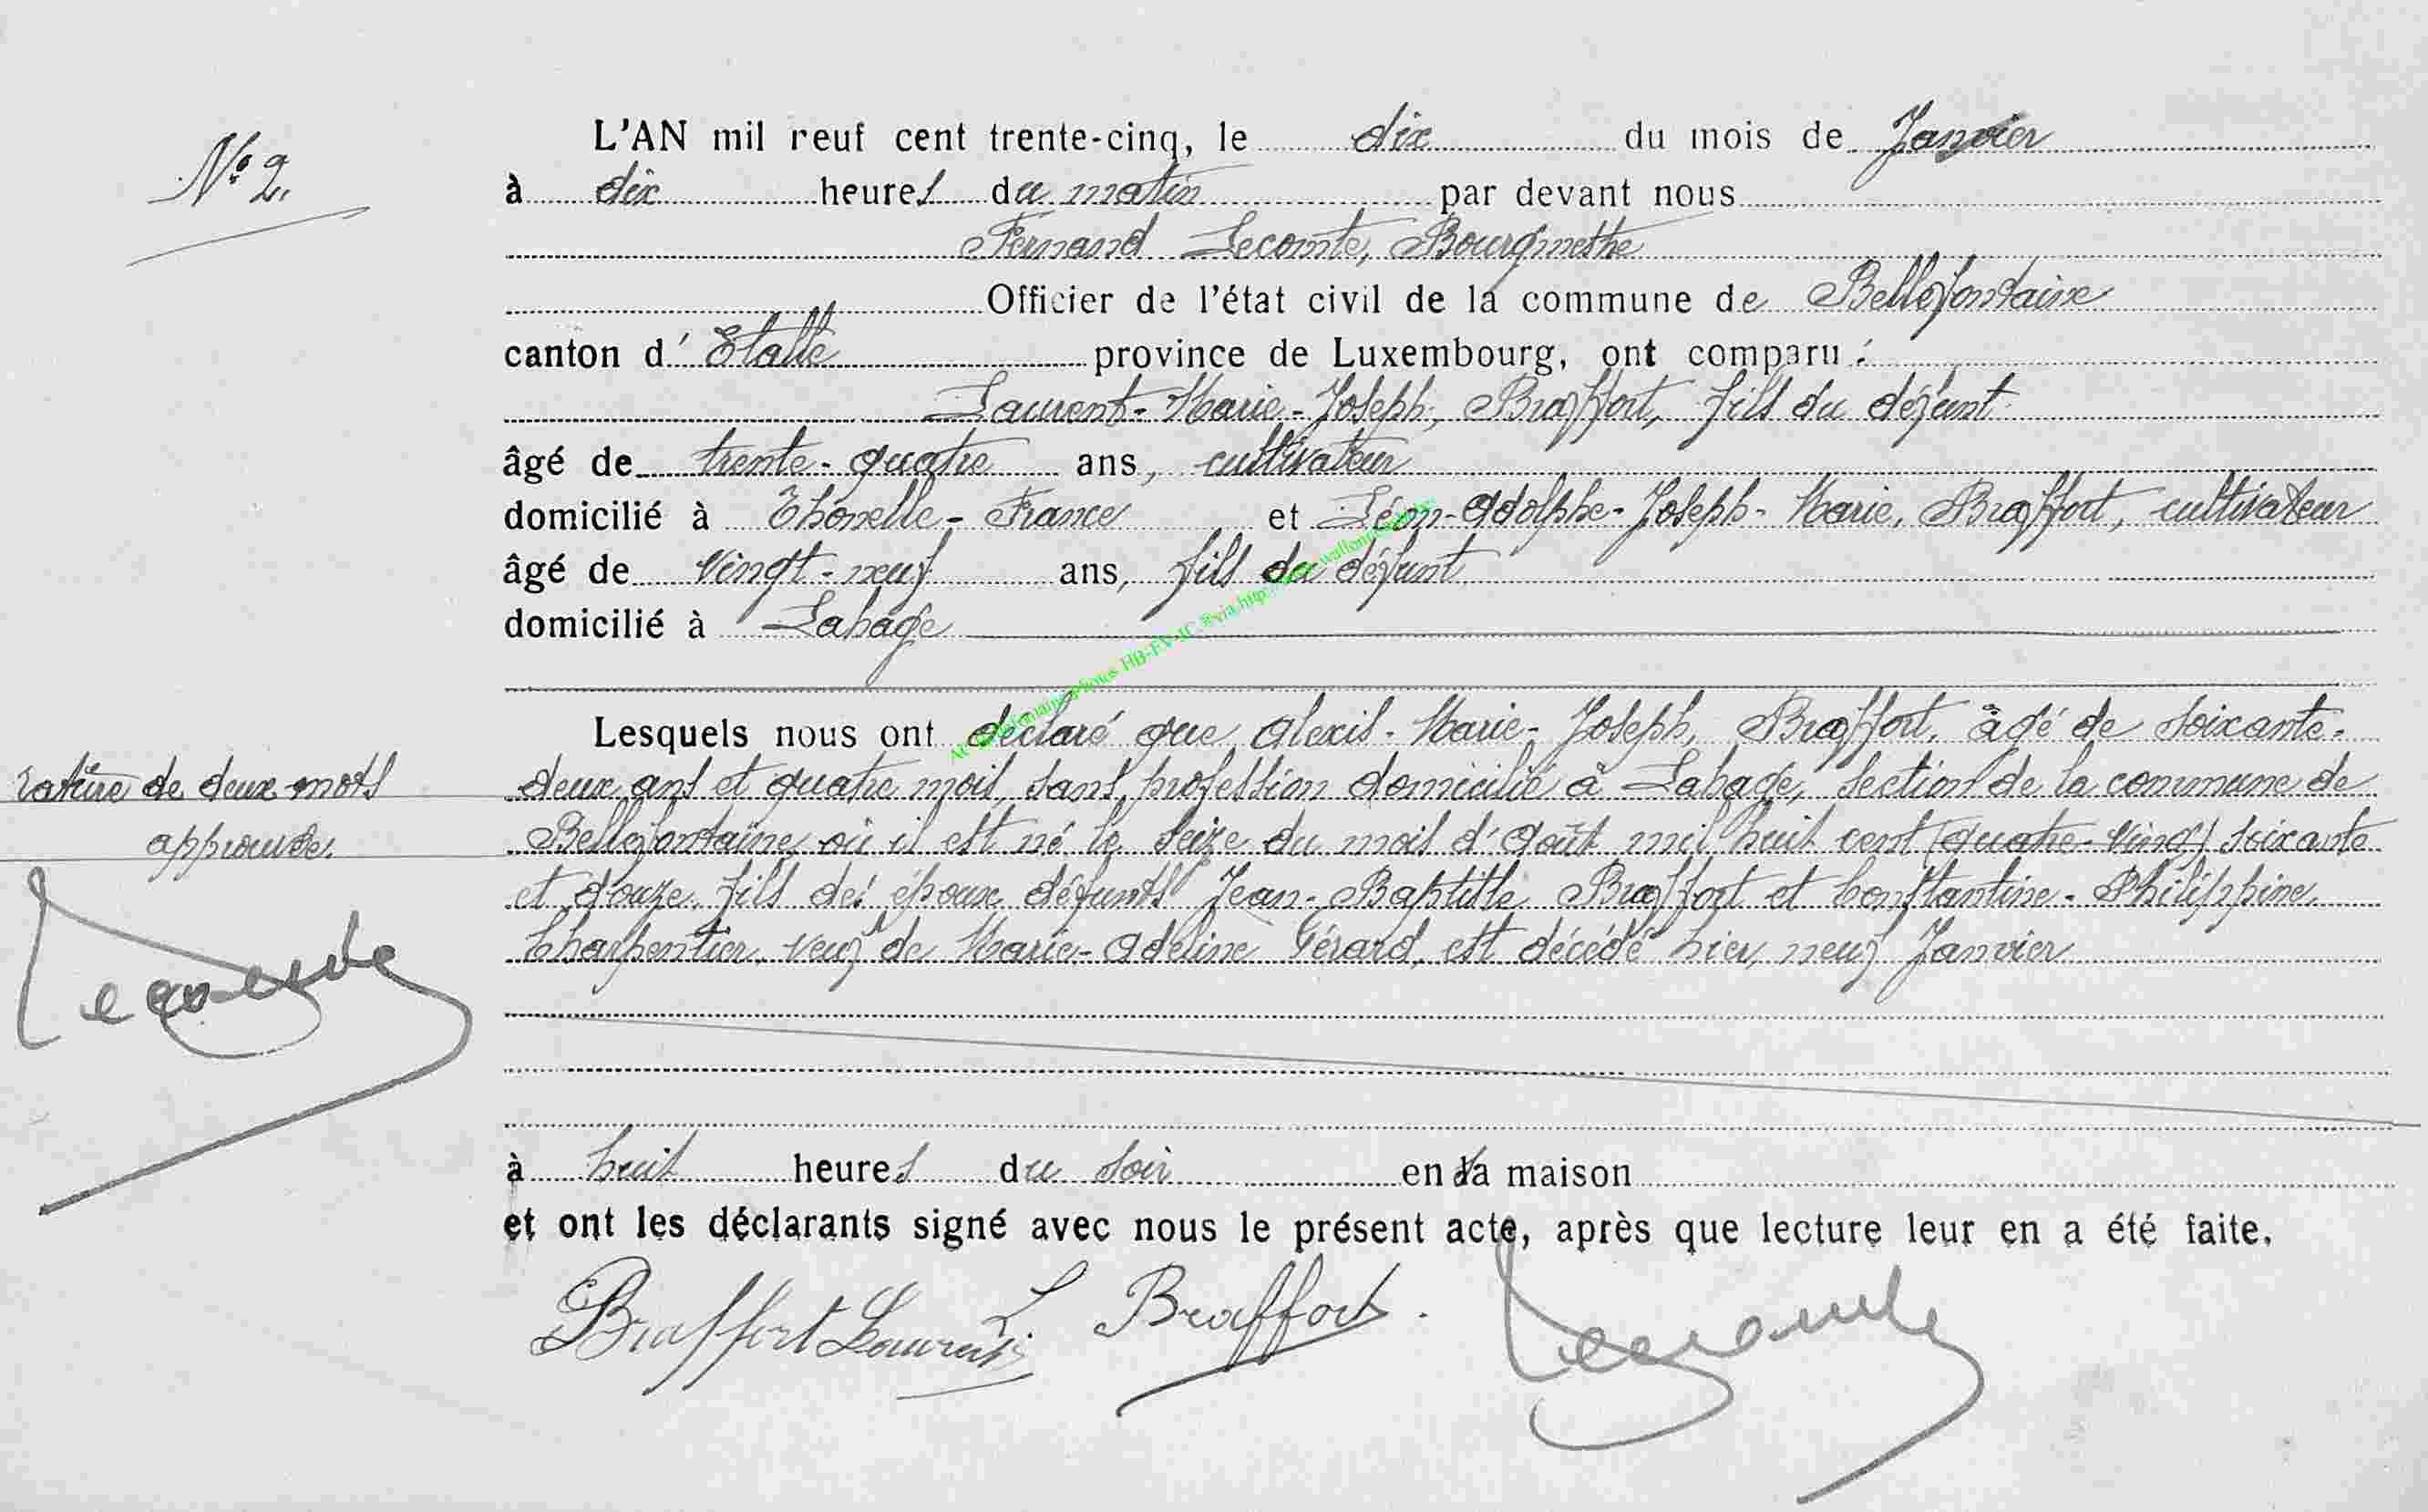 N° 2.
L'AN mil neuf cent trente-cinq, le dix du mois de Janvier
à dix heures du matin par devant nous
Fernand Lecomte, Bourgmestre
Officier de l'état civil de la commune de Bellefontaine
canton d'Etalle province de Luxembourg, ont comparu :
Laurent-Marie-Joseph, Braffort, fils du défunt
âgé de trente-quatre ans, cultivateur
domicilié à Thonelle - France et Léon-Adolphe-Joseph-Marie, Braffort, cultivateur
âgé de vingt-neuf ans, fils du défunt
domicilié à Lahage
Lesquels nous ont déclaré que Alexis-Marie-Joseph, Braffort, âgé de soixante-
deux ans et quatre mois, sans profession domicilié à Lahage, section de la commune de
Bellefontaine où il est né le seize du mois d'août mil huit cent (quatre-vingt) soixante
et douze, fils des époux défunts Jean-Baptiste Braffort et Constantine-Philippine
Charpentier, veuf de Marie-Adeline Gérard, est décédé hier, neuf Janvier
rature de deux mots
approuvée.
Lecomte
à huit heures du soir en sa maison
et ont les déclarants signé avec nous le présent acte, après que lecture leur en a été faite.
Braffort Laurent L Braffort. Lecomte